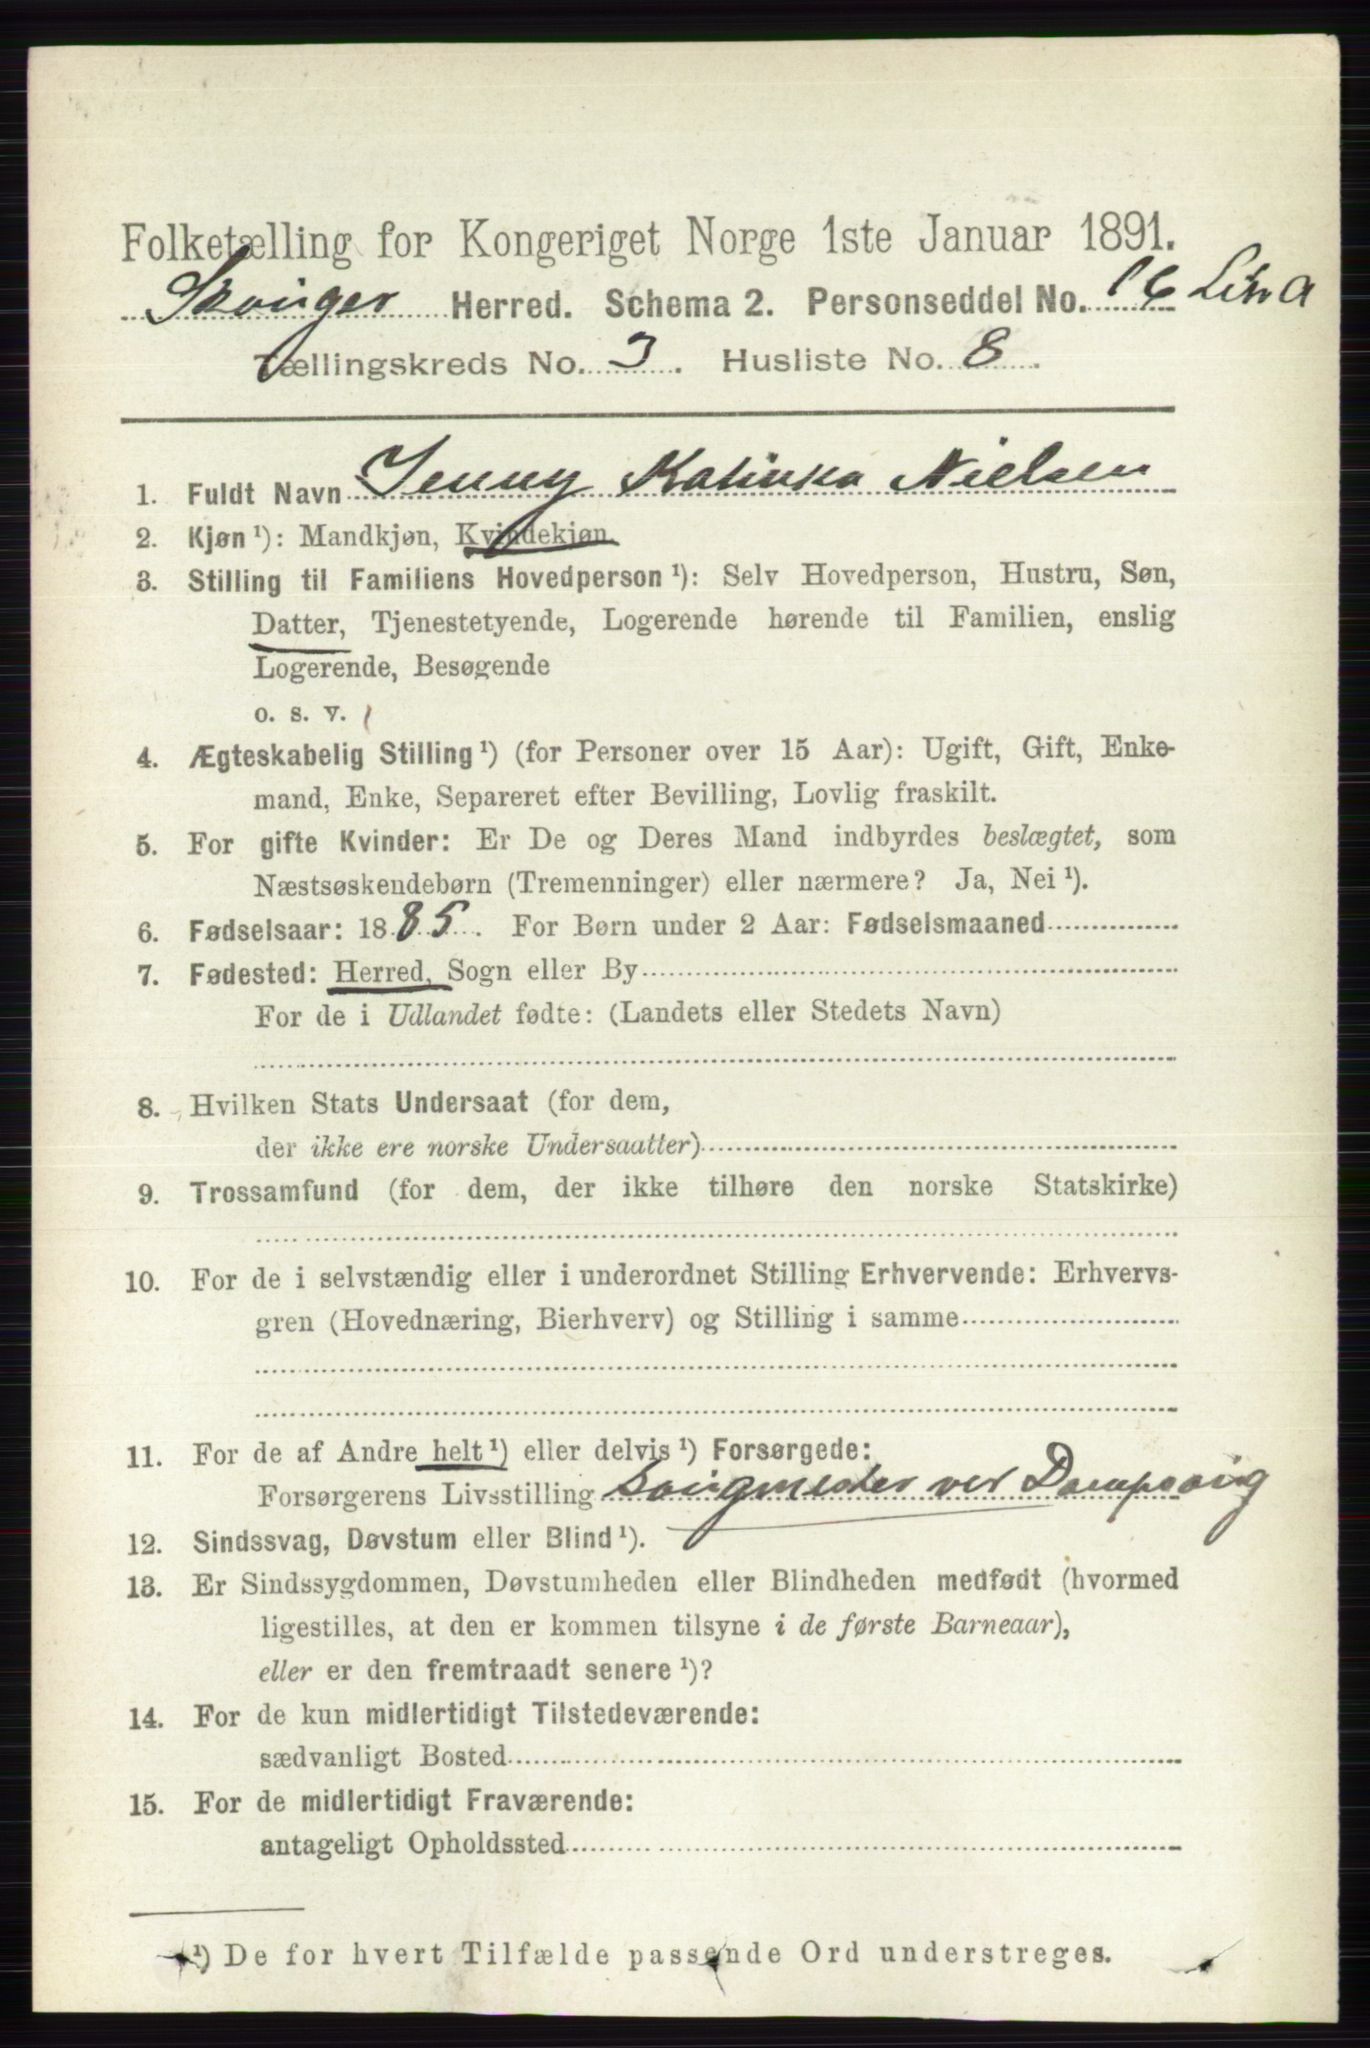 Folketælling for Kongeriget Norge 1ste Januar 1891.
Skouger Herred. Schema 2. Personseddel No. 16 Litr a
Tællingskreds No. 3. Husliste No. 8.
1. Fuldt Navn Jenny Katinka Nielsen
2. Kjøn ¹): Mandkjøn, Kvindekjøn.
3. Stilling til Familiens Hovedperson ¹): Selv Hovedperson, Hustru, Søn,
Datter, Tjenestetyende, Logerende hørende til Familien, enslig
Logerende, Besøgende
o. s. v.
4. Ægteskabelig Stilling ¹) (for Personer over 15 Aar): Ugift, Gift, Enke-
mand, Enke, Separeret efter Bevilling, Lovlig fraskilt.
5. For gifte Kvinder: Er De og Deres Mand indbyrdes beslægtet, som
Næstsøskendebørn (Tremenninger) eller nærmere? Ja, Nei ¹).
6. Fødselsaar: 1885. For Børn under 2 Aar: Fødselsmaaned
7. Fødested: Herred, Sogn eller By
For de i Udlandet fødte: (Landets eller Stedets Navn)
8. Hvilken Stats Undersaat (for dem,
der ikke ere norske Undersaatter)
9. Trossamfund (for dem, der ikke tilhøre den norske Statskirke)
10. For de i selvstændig eller i underordnet Stilling Erhvervende: Erhvervs-
gren (Hovednæring, Bierhverv) og Stilling i samme
11. For de af Andre helt ¹) eller delvis ¹) Forsørgede:
Forsørgerens Livsstilling Saugmester ved Dampsaug
12. Sindssvag, Døvstum eller Blind ¹).
13. Er Sindssygdommen, Døvstumheden eller Blindheden medfødt (hvormed
ligestilles, at den er kommen tilsyne i de første Barneaar),
eller er den fremtraadt senere ¹)?
14. For de kun midlertidigt Tilstedeværende:
sædvanligt Bosted
15. For de midlertidigt Fraværende:
antageligt Opholdssted
¹) De for hvert Tilfælde passende Ord understreges.